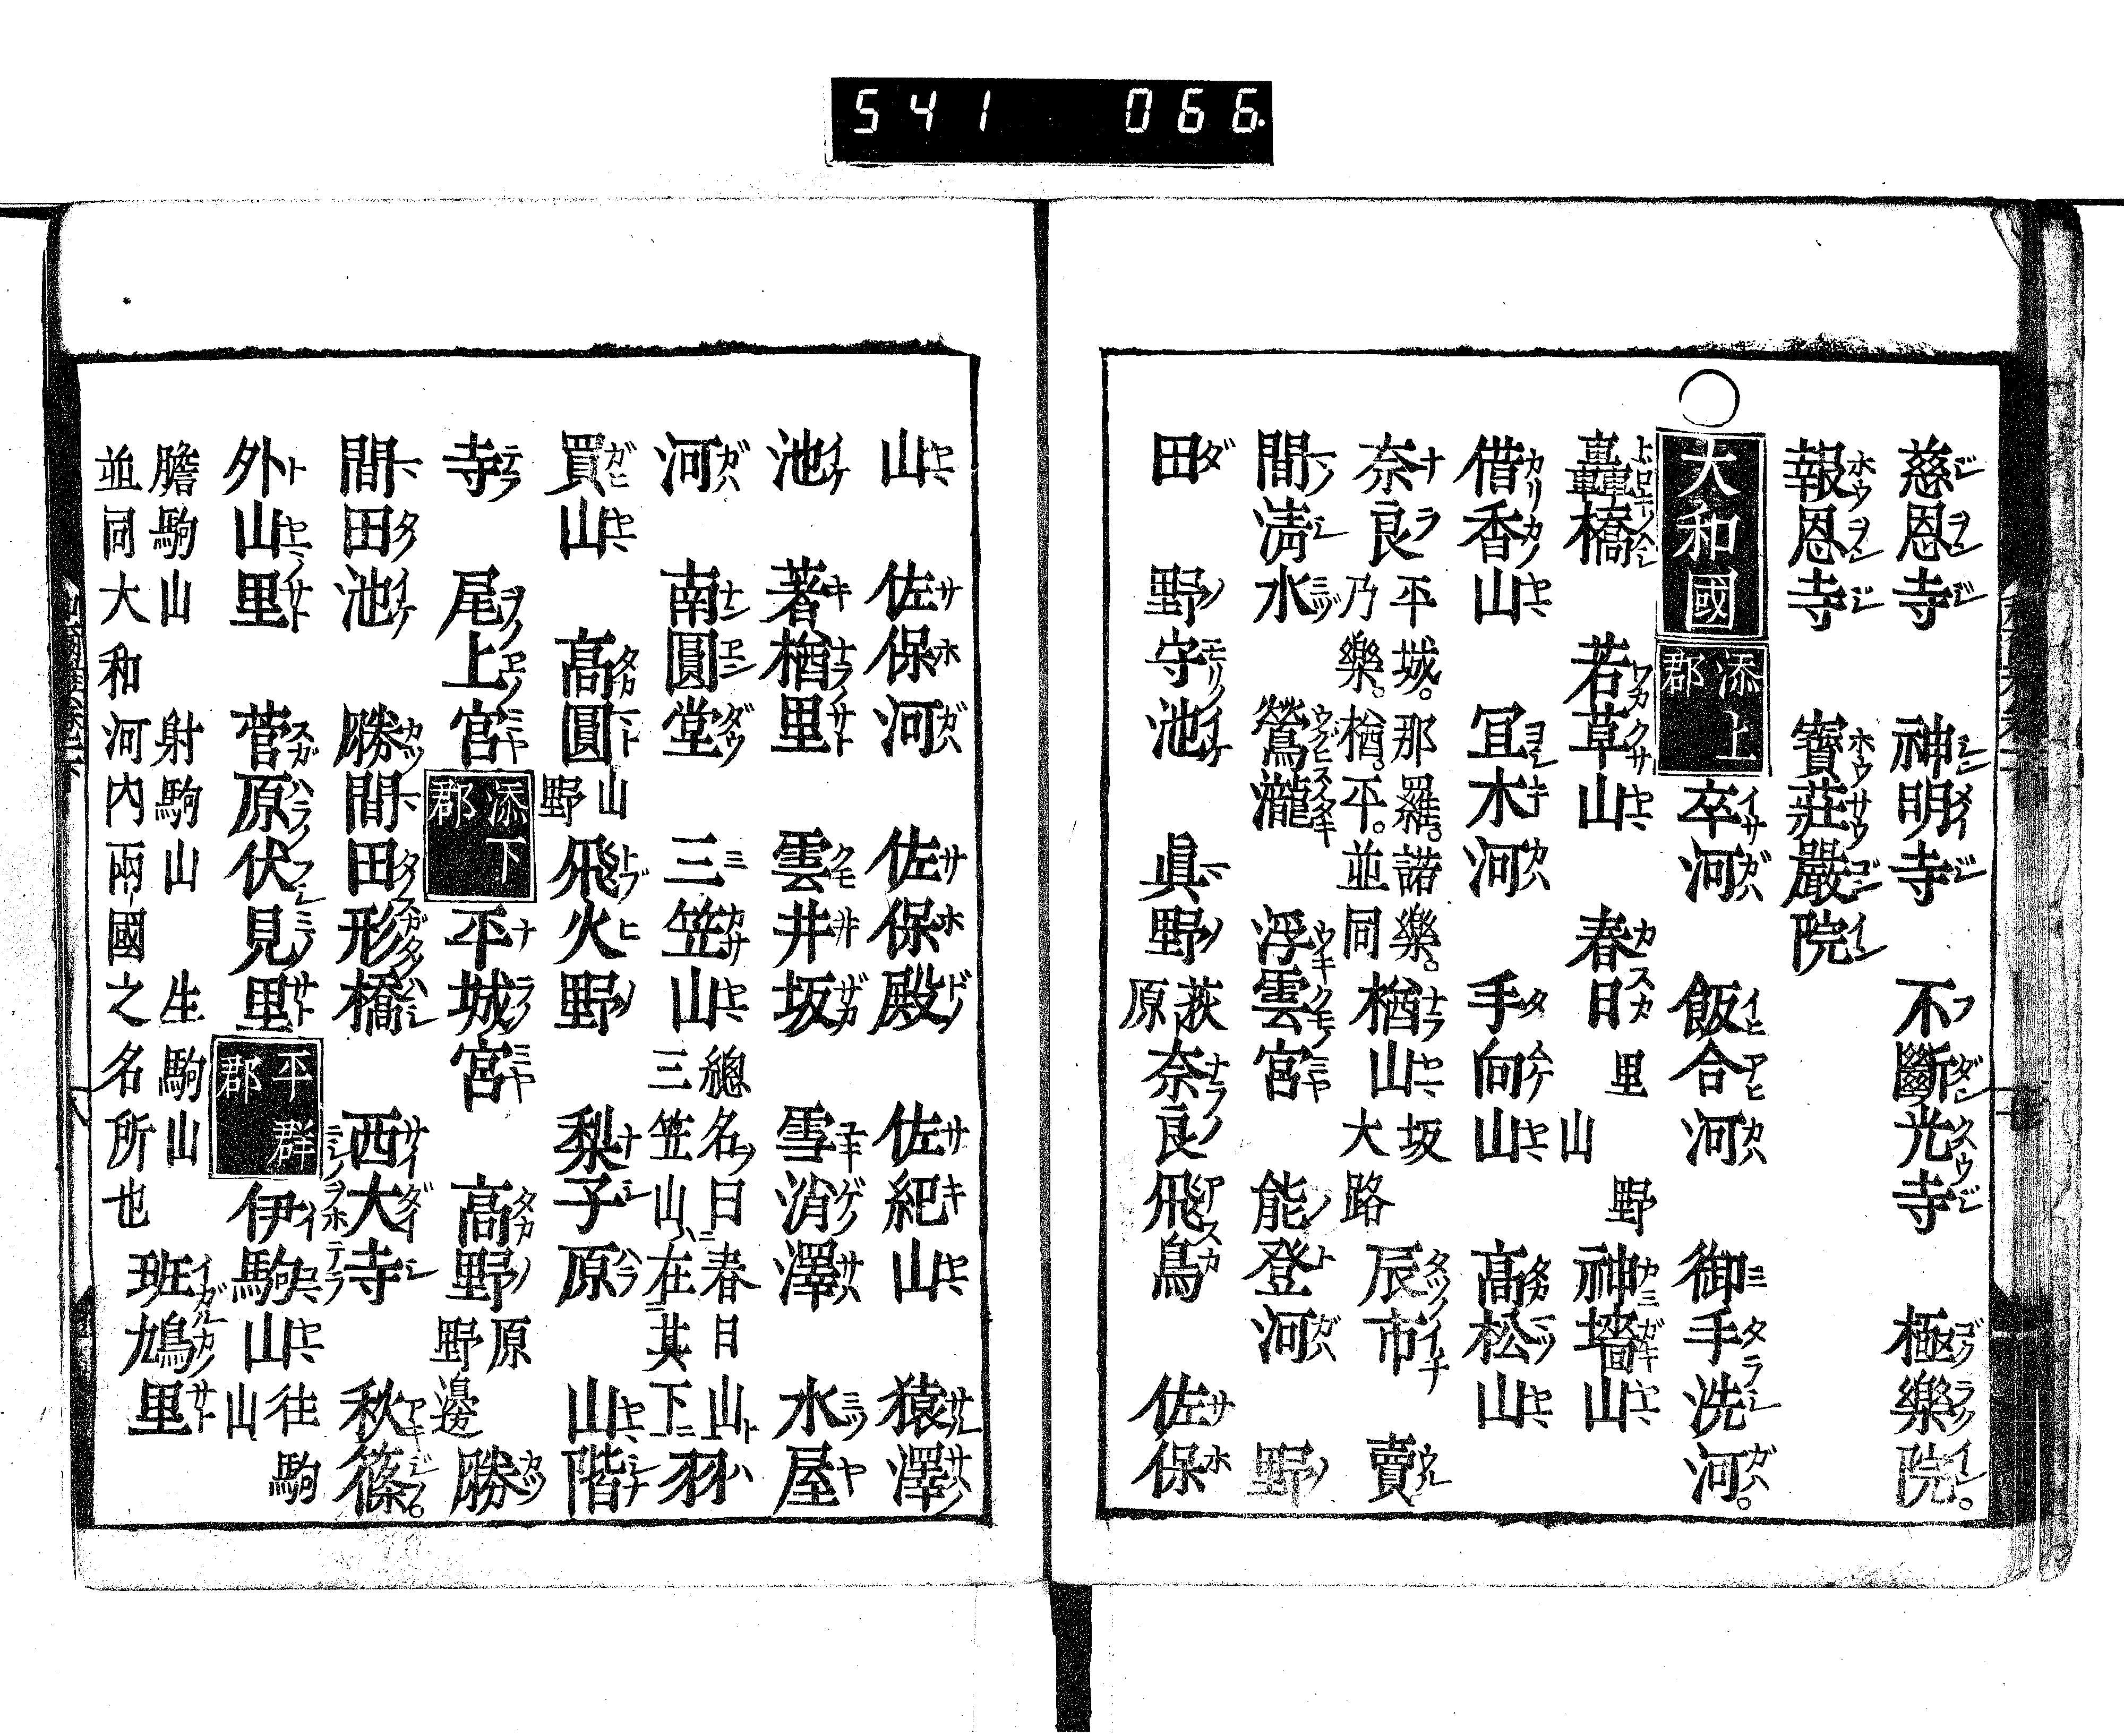 541 066
慈恩寺 神明寺 不斷光寺 極樂院。
報恩寺 寶莊嚴院
○大和國 添上郡 卒河 飯合河 御手洗河。
轟橋 若草山 春日 里 山 野 神墻山
借香山 冝木河 手向山 髙松山
奈良 平城。那羅。諾樂。乃樂。楢。平。並同 楢山 坂 大路 辰市 賣
間清水 鶯瀧 浮雲宮 能登河 野
田 野守池 眞野 萩原 奈良飛鳥 佐保
山 佐保河 佐保殿 佐紀山 猿澤
池 著楢里 雲井坂 雪消澤 水屋
河 南圓堂 三笠山 總名ヲ曰春日山ト 三笠山ハ在其下ニ 羽
買山 髙圓 山 野 飛火野 梨子原 山階
寺 尾上宮 添下郡 平城宮 髙野 原 野邊 勝
間田池 勝間田形橋 西大寺 秋篠。
外山里 菅原伏見里 平群郡 伊駒山 往駒山
膽駒山 射駒山 生駒山
並同大和河内兩國之名所也 班鳩里